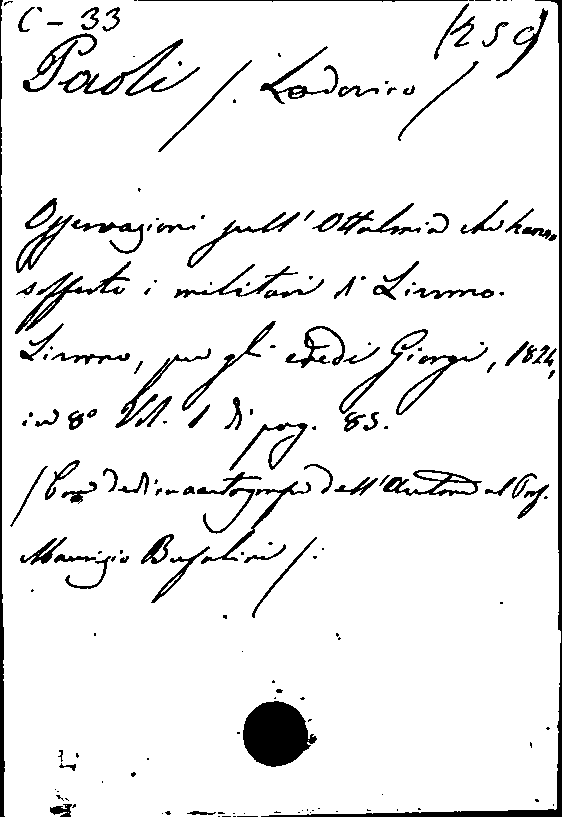 C - 33
(259)
Paoli /. Lodovico /
Osservazioni sull' Ottalmia che hanno
sofferto i militari di Livorno.
Livorno, per gli eredi Giorgi, 1824,
in 8° Vol. 1 di pag. 85.
/ Con dedica autografa dell'Autore al Prof.
Maurizio Bufalini /.